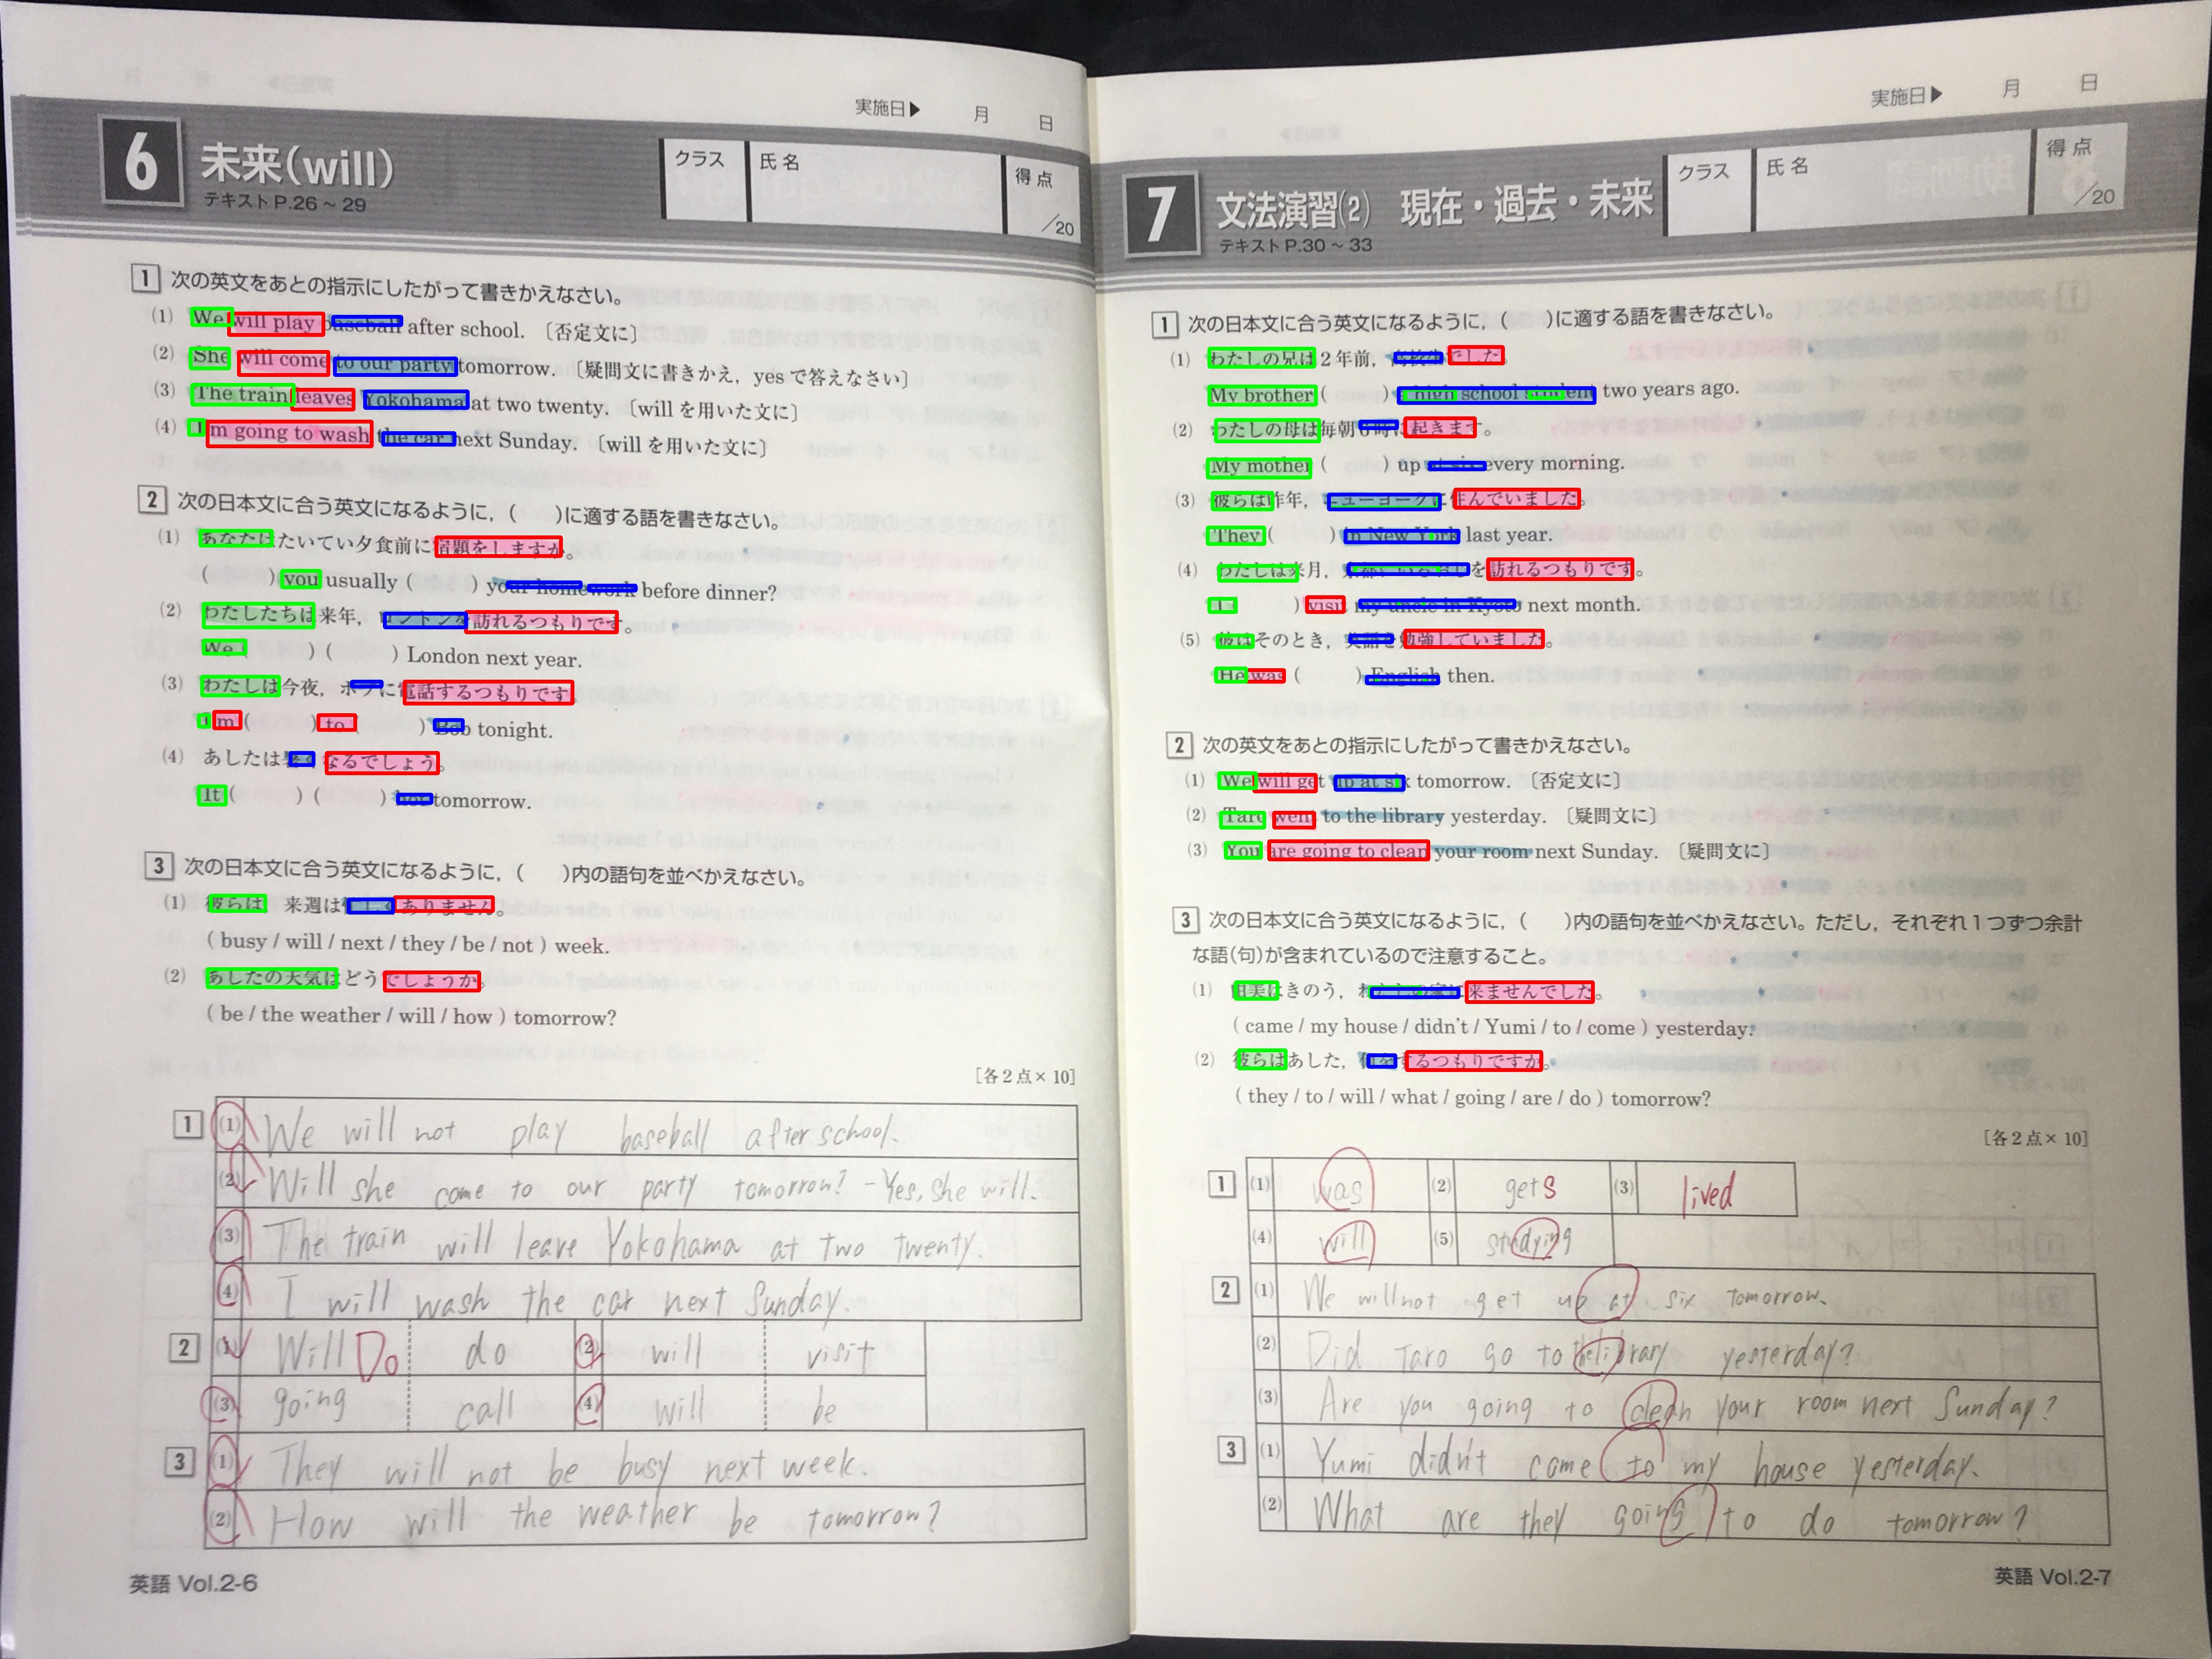 実施日▶ 月 日
6 未来(will)
テキストP.26～29
クラス 氏名 得点 /20
1 次の英文をあとの指示にしたがって書きかえなさい。
(1) We will play baseball after school. 〔否定文に〕
(2) She will come to our party tomorrow. 〔疑問文に書きかえ，yesで答えなさい〕
(3) The train leaves Yokohama at two twenty. 〔willを用いた文に〕
(4) I'm going to wash the car next Sunday. 〔willを用いた文に〕
2 次の日本文に合う英文になるように，( )に適する語を書きなさい。
(1) あなたはたいてい夕食前に宿題をしますか。
( ) you usually ( ) your homework before dinner?
(2) わたしたちは来年，ロンドンを訪れるつもりです。
We ( ) ( ) London next year.
(3) わたしは今夜，ボブに電話するつもりです。
I'm ( ) to ( ) Bob tonight.
(4) あしたは暑くなるでしょう。
It ( ) ( ) hot tomorrow.
3 次の日本文に合う英文になるように，( )内の語句を並べかえなさい。
(1) 彼らは 来週は忙しくありません。
( busy / will / next / they / be / not ) week.
(2) あしたの天気はどうでしょうか。
( be / the weather / will / how ) tomorrow?
[各2点×10]
1 (1) We will not play baseball after school.
(2) Will she come to our party tomorrow? - Yes, she will.
(3) The train will leave Yokohama at two twenty.
(4) I will wash the car next Sunday.
2 (1) Will Do do (2) will visit
(3) going call (4) will be
3 (1) They will not be busy next week.
(2) How will the weather be tomorrow?
英語 Vol.2-6
実施日▶ 月 日
7 文法演習(2) 現在・過去・未来
テキストP.30～33
クラス 氏名 得点 /20
1 次の日本文に合う英文になるように，( )に適する語を書きなさい。
(1) わたしの兄は2年前，高校生でした。
My brother ( ) a high school student two years ago.
(2) わたしの母は毎朝6時に起きます。
My mother ( ) up at six every morning.
(3) 彼らは昨年，ニューヨークに住んでいました。
They ( ) in New York last year.
(4) わたしは来月，京都にいるおじを訪れるつもりです。
I ( ) visit my uncle in Kyoto next month.
(5) 彼はそのとき，英語を勉強していました。
He was ( ) English then.
2 次の英文をあとの指示にしたがって書きかえなさい。
(1) We will get up at six tomorrow. 〔否定文に〕
(2) Taro went to the library yesterday. 〔疑問文に〕
(3) You are going to clean your room next Sunday. 〔疑問文に〕
3 次の日本文に合う英文になるように，( )内の語句を並べかえなさい。ただし，それぞれ1つずつ余計
な語(句)が含まれているので注意すること。
(1) 由美はきのう，わたしの家に来ませんでした。
( came / my house / didn't / Yumi / to / come ) yesterday.
(2) 彼らはあした，何をするつもりですか。
( they / to / will / what / going / are / do ) tomorrow?
[各2点×10]
1 (1) was (2) gets (3) lived
(4) will (5) studying
2 (1) We will not get up at six tomorrow.
(2) Did Taro go to the library yesterday?
(3) Are you going to clean your room next Sunday?
3 (1) Yumi didn't come to my house yesterday.
(2) What are they going to do tomorrow?
英語 Vol.2-7